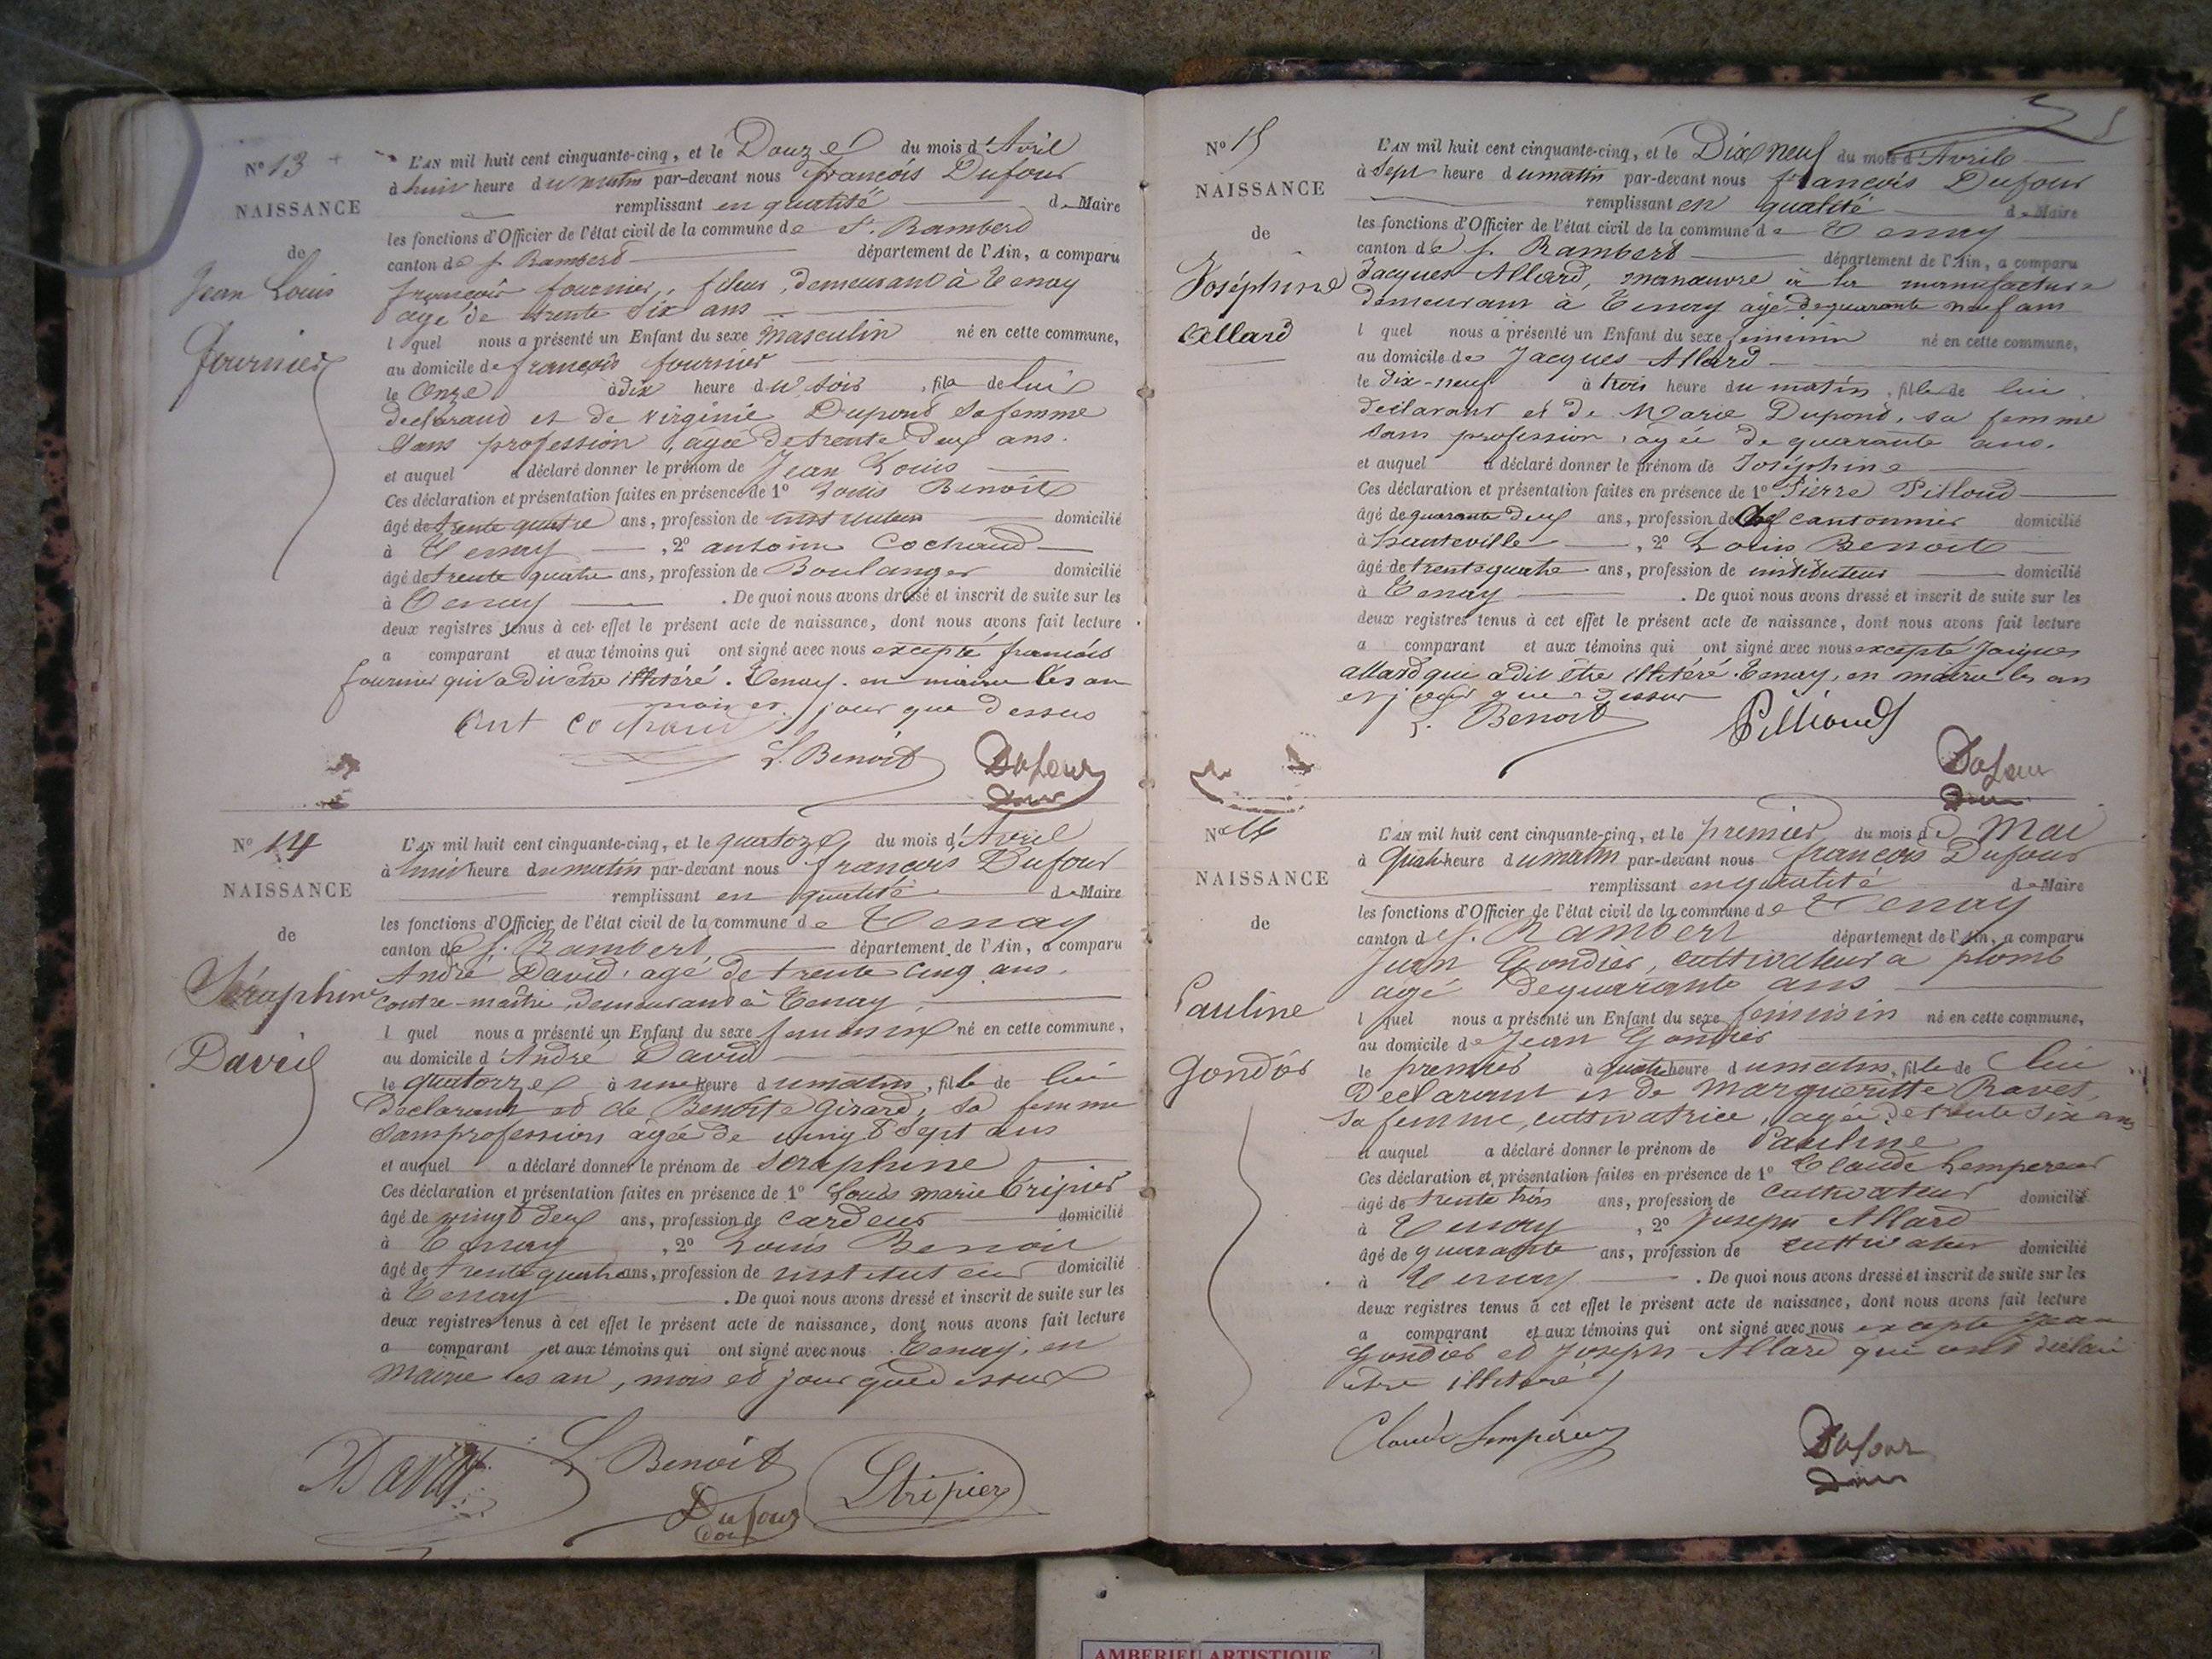 N° 13
NAISSANCE
de
Jean Louis
fournier
L'AN mil huit cent cinquante-cinq, et le Douze du mois d'Avril
à huit heure du matin par-devant nous françois Dufour
remplissant en qualité de Maire
les fonctions d'Officier de l'état civil de la commune de St. Rambert
canton de St. Rambert département de l'Ain, a comparu
françois fournier, fileur, demeurant à Tenay
agé de trente six ans
l quel nous a présenté un Enfant du sexe masculin né en cette commune,
au domicile de françois fournier
le Onze à dix heure du soir, fils de lui
declarand et de virginie Dupond sa femme
sans profession, agée de trente deux ans.
et auquel a déclaré donner le prénom de Jean Louis
Ces déclaration et présentation faites en présence de 1° Louis Benoit
âgé de trente quatre ans, profession de instituteur domicilié
à Tenay, 2° antoine Cochand
âgé de trente quatre ans, profession de Boulanger domicilié
à Tenay. De quoi nous avons dressé et inscrit de suite sur les
deux registres tenus à cet effet le présent acte de naissance, dont nous avons fait lecture
a comparant et aux témoins qui ont signé avec nous excepté françois
fournier qui a dit être illitéré. Tenay. en mairie les an
mois et jour que dessus
Ant Cochand
L. Benoit Dufour
N° 14
NAISSANCE
de
Séraphine
David
L'AN mil huit cent cinquante-cinq, et le quatorze du mois d'Avril
à huit heure du matin par-devant nous françois Dufour
remplissant en qualité de Maire
les fonctions d'Officier de l'état civil de la commune de Tenay
canton de St. Rambert, département de l'Ain, a comparu
André David, agé de trente cinq ans.
contre-maître, demeurand à Tenay,
l quel nous a présenté un Enfant du sexe femenin né en cette commune,
au domicile d André David
le quatorze à une heure du matin, fille de lui
declarant et de Benoite Girard, sa femme
sans profession âgée de vingt sept ans
et auquel a déclaré donner le prénom de Séraphine
Ces déclaration et présentation faites en présence de 1° Louis marie Tripier
âgé de vingt deux ans, profession de cardeur domicilié
à Tenay, 2° Louis Benoit
âgé de trente quatre ans, profession de instituteur domicilié
à Tenay. De quoi nous avons dressé et inscrit de suite sur les
deux registres tenus à cet effet le présent acte de naissance, dont nous avons fait lecture
a comparant et aux témoins qui ont signé avec nous. Tenay, en
Mairie les an, mois et jour que dessus
David L Benoit
Dufour LTripier
N° 15
NAISSANCE
de
Joséphine
Allard
L'AN mil huit cent cinquante-cinq, et le Dix neuf du mois d'Avril
à Sept heure du matin par-devant nous françois Dufour
remplissant en qualité de Maire
les fonctions d'Officier de l'état civil de la commune de Tenay
canton de St. Rambert département de l'Ain, a comparu
Jacques Allard, manœuvre à la manufacture
demeurant à Tenay âgé de quarante neuf ans
l quel nous a présenté un Enfant du sexe feminin né en cette commune,
au domicile de Jacques Allard
le dix-neuf à trois heure du matin, fille de lui
declarant et de Marie Dupond, sa femme
sans profession, agée de quarante ans.
et auquel a déclaré donner le prénom de Joséphine
Ces déclaration et présentation faites en présence de 1° Pierre Pilloud
âgé de quarante deux ans, profession de Chef cantonnier domicilié
à hauteville, 2° Louis Benoit
âgé de trente quatre ans, profession de instituteur domicilié
à Tenay. De quoi nous avons dressé et inscrit de suite sur les
deux registres tenus à cet effet le présent acte de naissance, dont nous avons fait lecture
a comparant et aux témoins qui ont signé avec nous excepté Jacques
allard qui a dit être illitéré. Tenay, en mairie les an
et jour que dessus
L. Benoit Pillioud
Dufour
N° 16
NAISSANCE
de
Pauline
Gondier
L'AN mil huit cent cinquante-cinq, et le premier du mois de Mai
à quatre heure du matin par-devant nous françois Dufour
remplissant en qualité de Maire
les fonctions d'Officier de l'état civil de la commune de Tenay
canton de St. Rambert département de l'Ain, a comparu
Jean Gondier, cultivateur a plomb
agé de quarante ans
l quel nous a présenté un Enfant du sexe feminin né en cette commune,
au domicile de Jean Gondier
le premier à quatre heure du matin, fille de lui
Declarant et de Margueritte Ravet,
sa femme, cultivatrice, agée de trente six ans
et auquel a déclaré donner le prénom de Pauline
Ces déclaration et présentation faites en présence de 1° Claude Lempereur
âgé de trente trois ans, profession de cultivateur domicilié
à Tenay, 2° Joseph Allard
âgé de quarante ans, profession de cultivateur domicilié
à Tenay. De quoi nous avons dressé et inscrit de suite sur les
deux registres tenus à cet effet le présent acte de naissance, dont nous avons fait lecture
a comparant et aux témoins qui ont signé avec nous excepté Jean
Gondier et Joseph Allard qui ont déclaré
être illitéré
Claude Lempereur Dufour
AMBERIEU ARTISTIQUE